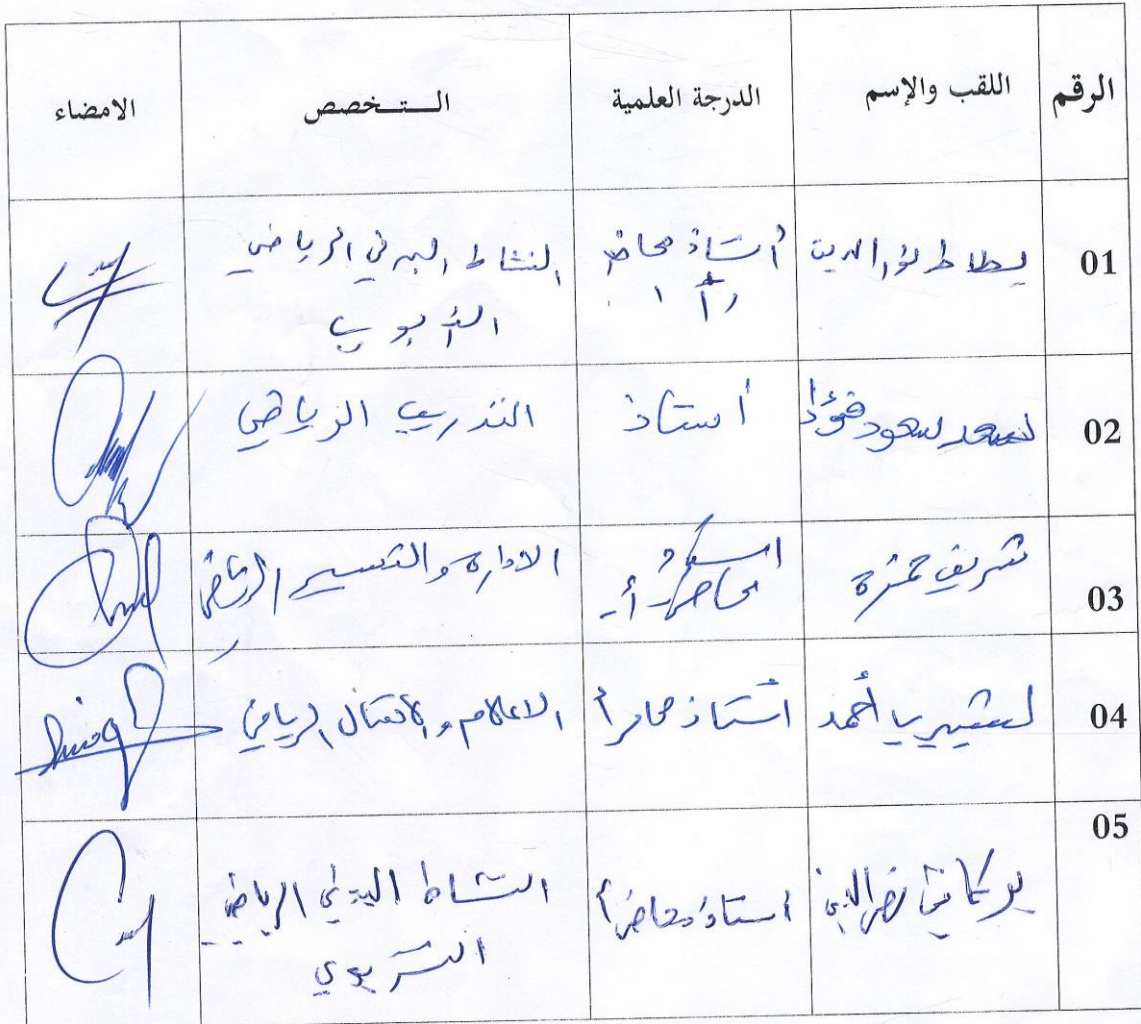 الرقم اللقب والإسم الدرجة العلمية الـتـخصص الامضاء
01 نور الدين أستاذ محاضر النشاط البدني الرياضي
أ التربوي
02 سعد سعود فؤاد أستاذ التدريب الرياضي
03 شريف حمزة استاذ الادارة والتسيير الرياضي
محاضر أ
04 أحمد أستاذ محاضر أ الاعلام والاتصال الرياضي
05
نصر الدين استاذ محاضر أ النشاط البدني الرياضي
التربوي